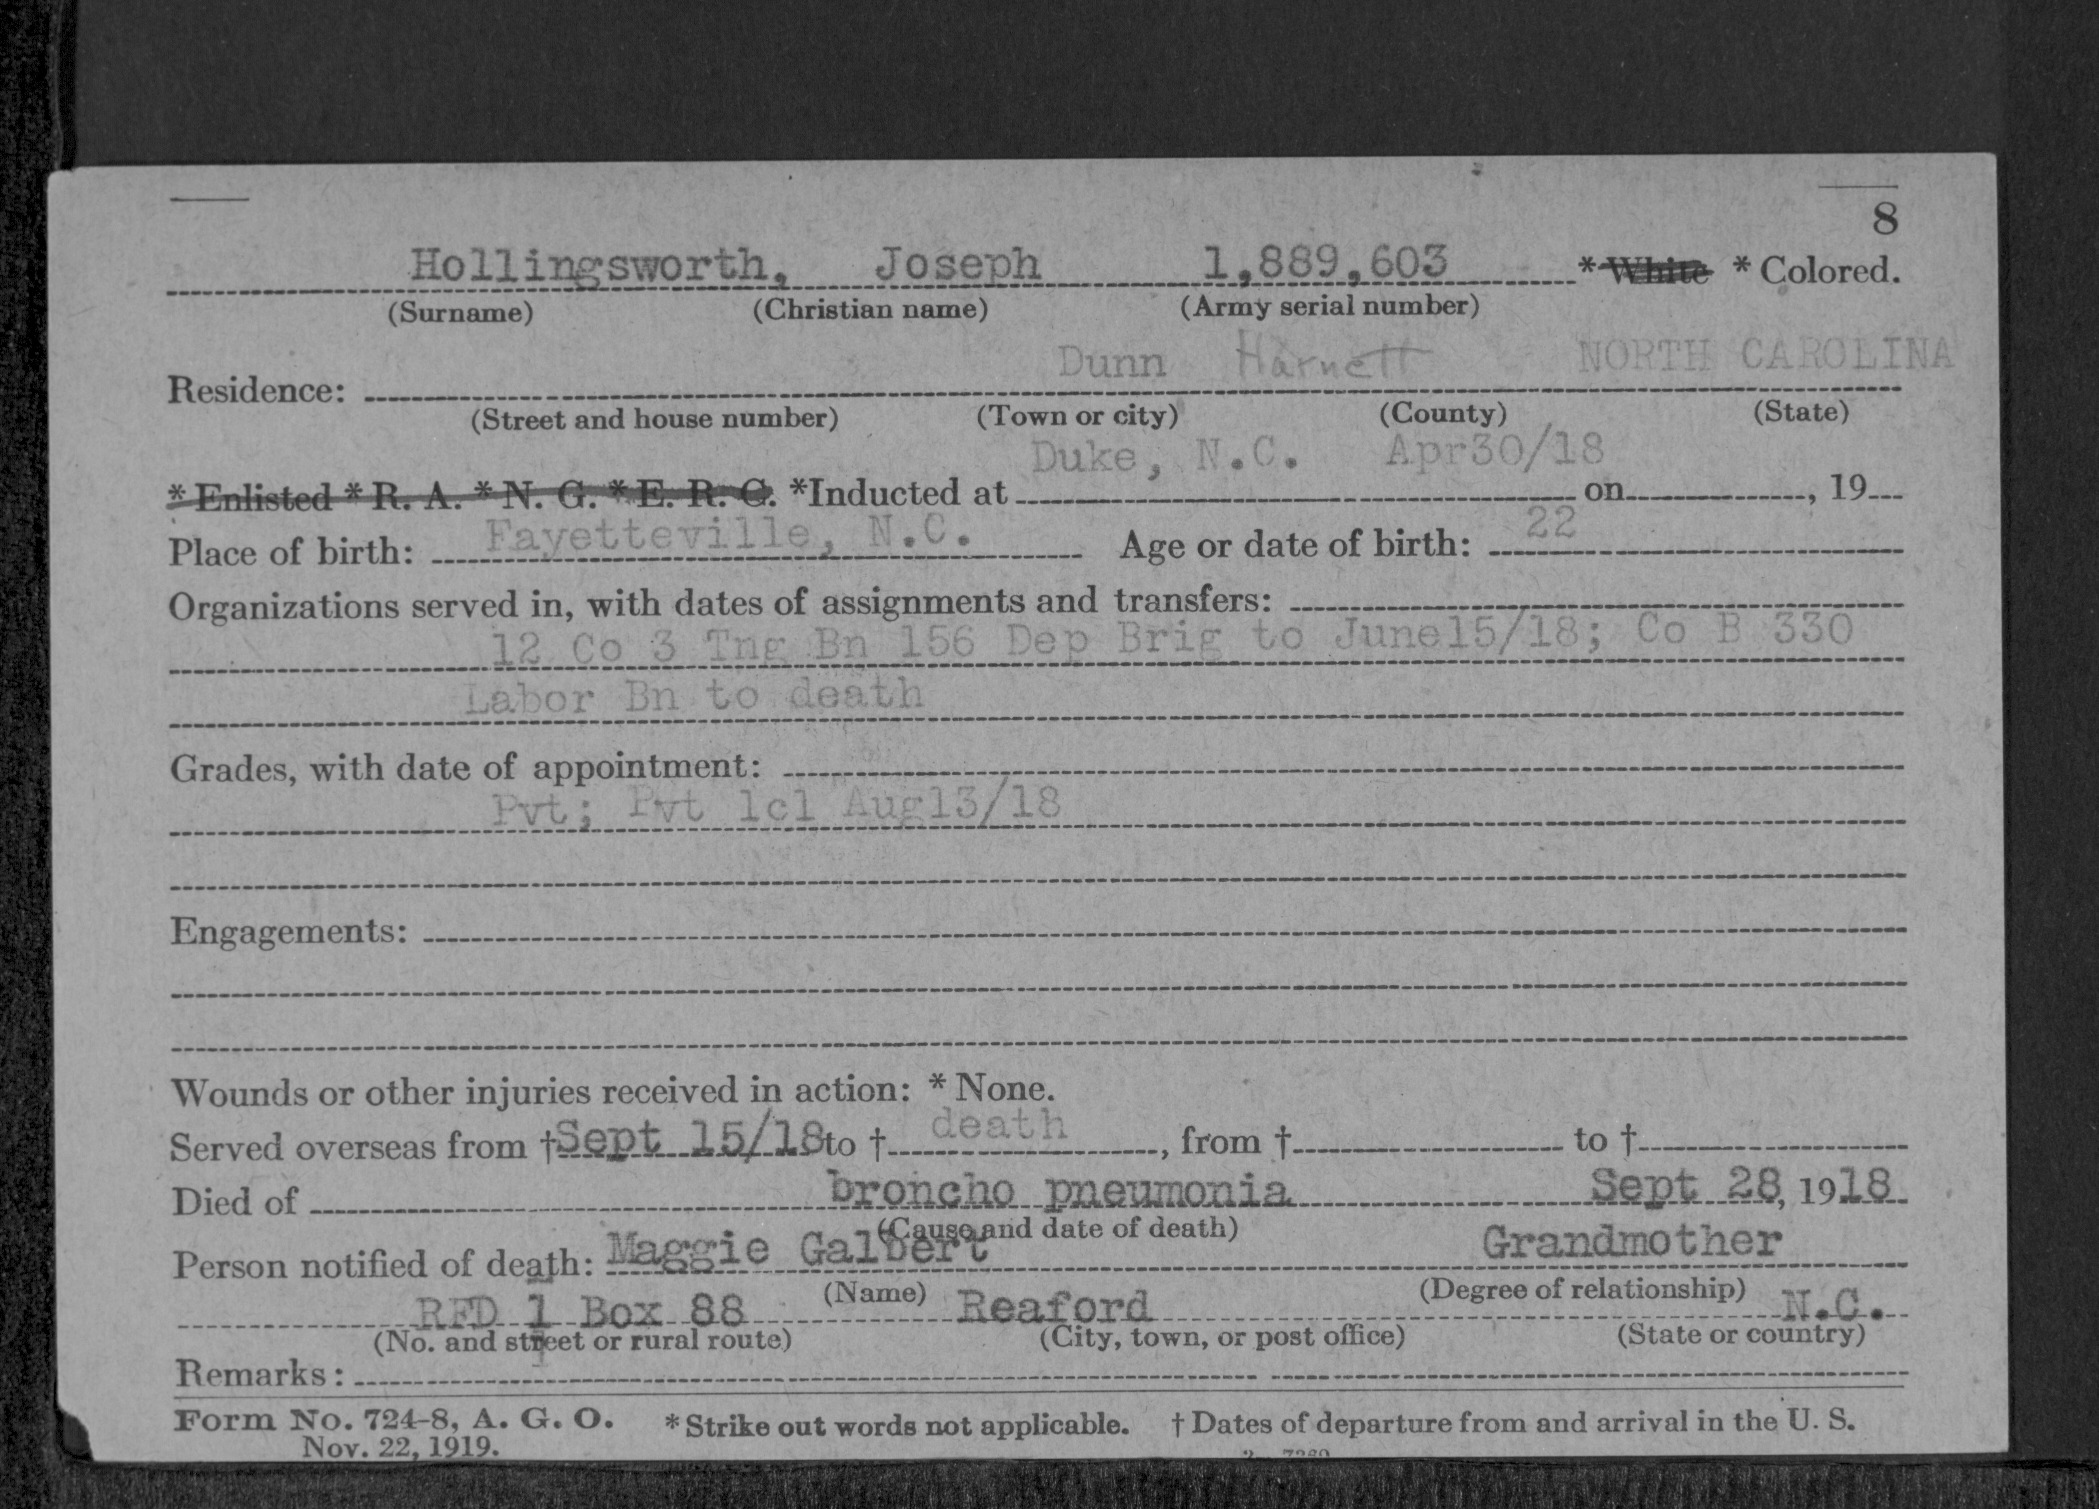 8
Hollingsworth, Joseph 1,889,603 * White * Colored.
(Surname) (Christian name) (Army serial number)
Dunn Harnett NORTH CAROLINA
Residence:
(Street and house number) (Town or city) (County) (State)
Duke, N.C. Apr30/18
* Enlisted * R. A. * N. G. * E. R. C. *Inducted at on , 19
Fayetteville, N.C. 22
Place of birth: Age or date of birth:
Organizations served in, with dates of assignments and transfers:
12 Co 3 Tng Bn 156 Dep Brig to June15/18; Co B 330
Labor Bn to death
Grades, with date of appointment:
Pvt; Pvt 1cl Aug13/18
Engagements:
Wounds or other injuries received in action: * None.
Served overseas from †Sept 15/18 to † death, from † to †
Died of broncho pneumonia Sept 28, 1918
(Cause and date of death)
Person notified of death: Maggie Galbert Grandmother
(Name) (Degree of relationship)
RFD 1 Box 88 Reaford N.C.
(No. and street or rural route) (City, town, or post office) (State or country)
Remarks:
Form No. 724-8, A. G. O. * Strike out words not applicable. † Dates of departure from and arrival in the U. S.
Nov. 22, 1919.